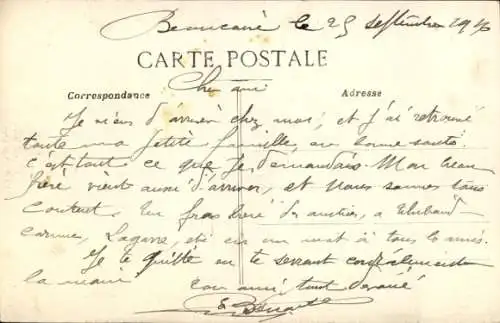 Beaucaire le 25 septembre 1916
CARTE POSTALE
Cher ami
Correspondance Adresse
Je viens d'arriver chez moi, et j'ai retrouvé
toute ma petite famille, en bonne santé
c'est tout ce que je demandais. Mon beau
frère vient aussi d'arriver, et nous sommes tous
content. Un gros des amitiés, a
Lagarre, etc en un mot à tous les amis.
Je te quitte en te serrant cordialement
la main ton ami tout dévoué